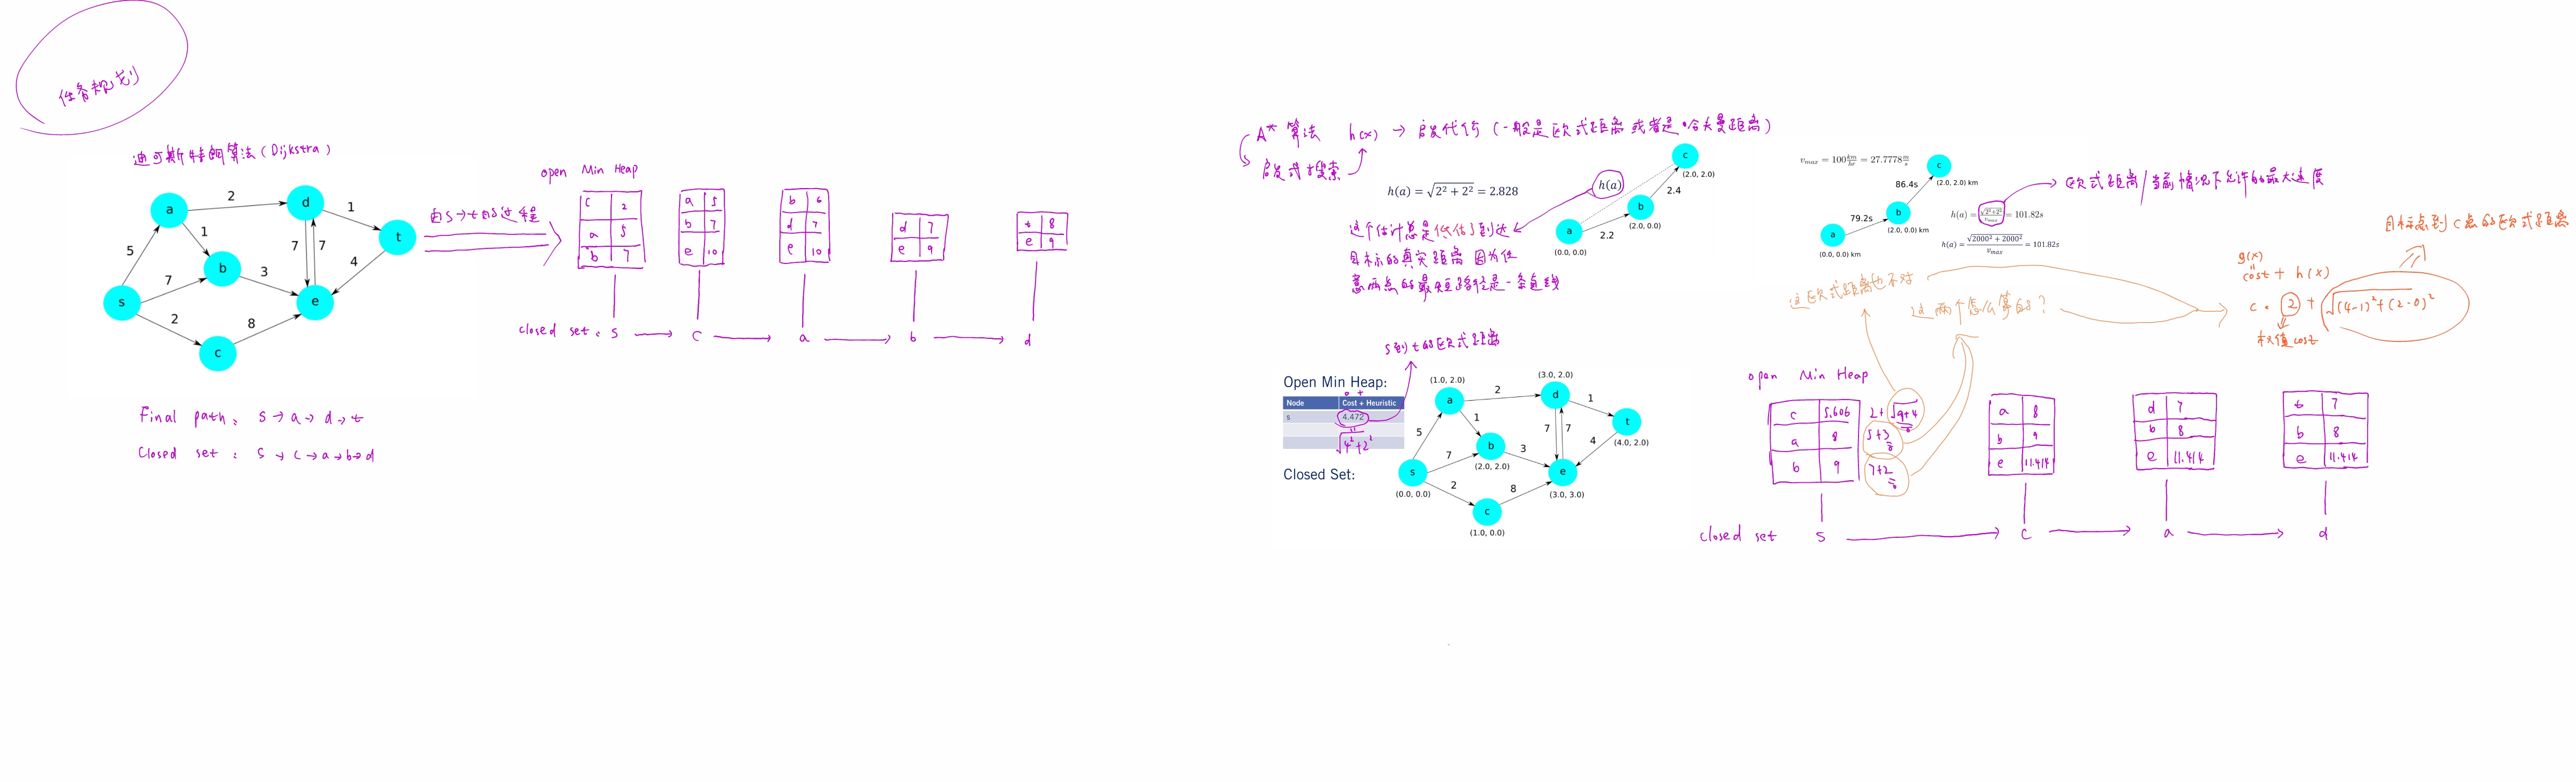 任务规划
迪可斯特朗算法(Dijkstra)
a
2
d
1
t
5
1
7
7
4
b
3
s
7
e
2
8
c
由s→t的过程
open Min Heap
c 2
a 5
b 7
a 5
b 7
e 10
b 6
d 7
e 10
d 7
e 9
t 8
e 9
closed set: s → c → a → b → d
Final path: s → a → d → t
Closed set: s → c → a → b → d
A* 算法 h(x) → 启发代价 (一般是欧式距离 或者是哈夫曼距离)
启发式搜索
h(a) = √2² + 2² = 2.828
这个估计总是低估了到达
目标的真实距离 因为任
意两点的最短路径是一条直线
c
(2.0, 2.0)
h(a)
2.4
b
(2.0, 0.0)
a
2.2
(0.0, 0.0)
v_max = 100 km/hr = 27.7778 m/s
c
(2.0, 2.0) km
86.4s
79.2s
b
(2.0, 0.0) km
a
(0.0, 0.0) km
h(a) = √2²+2² / v_max = 101.82s
h(a) = √2000² + 2000² / v_max = 101.82s
欧式距离/当前情况下允许的最大速度
目标点到c点的欧式距离
g(x)
"
cost + h(x)
c: 2 + √(4-1)²+(2-0)²
权值cost
这欧式距离也不对
这两个怎么算的?
s到t的欧式距离
Open Min Heap:
0 +
Node Cost + Heuristic
s 4.472
"
√4²+2²
Closed Set:
(1.0, 2.0)
a
2
(3.0, 2.0)
d
1
t
(4.0, 2.0)
5
1
7
7
4
b
(2.0, 2.0)
3
s
(0.0, 0.0)
7
e
(3.0, 3.0)
2
8
c
(1.0, 0.0)
open Min Heap
c 5.606 2+√9+4
a 8 5+3
b 9 7+2
a 8
b 9
e 11.414
d 7
b 8
e 11.414
t 7
b 8
e 11.414
closed set s → c → a → d